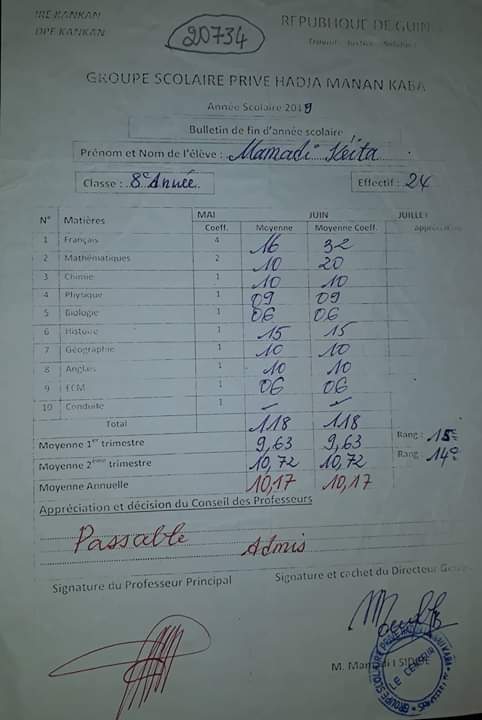 IRE KANKAN
DPE KANKAN
20734
REPUBLIQUE DE GUIN
Travail Justice Solidarité
GROUPE SCOLAIRE PRIVE HADJA MANAN KABA
Année Scolaire 2019
Bulletin de fin d'année scolaire
Prénom et Nom de l'élève : Mamadi Keita
Classe : 8e Année Effectif : 24
N° Matières MAI JUIN JUILLET
Coeff. Moyenne Moyenne Coeff. Appréciation
1 Français 4 16 32
2 Mathématiques 2 10 20
3 Chimie 1 10 10
4 Physique 1 09 09
5 Biologie 1 06 06
6 Histoire 1 15 15
7 Géographie 1 10 10
8 Anglais 1 10 10
9 ECM 1 06 06
10 Conduite 1
Total 118 118
Moyenne 1er trimestre 9,63 9,63 Rang : 15e
Moyenne 2ème trimestre 10,72 10,72 Rang : 14e
Moyenne Annuelle 10,17 10,17
Appréciation et décision du Conseil des Professeurs
Passable Admis
Signature du Professeur Principal Signature et cachet du Directeur
M. SIDIBE
LE CENSEUR
GROUPE SCOLAIRE